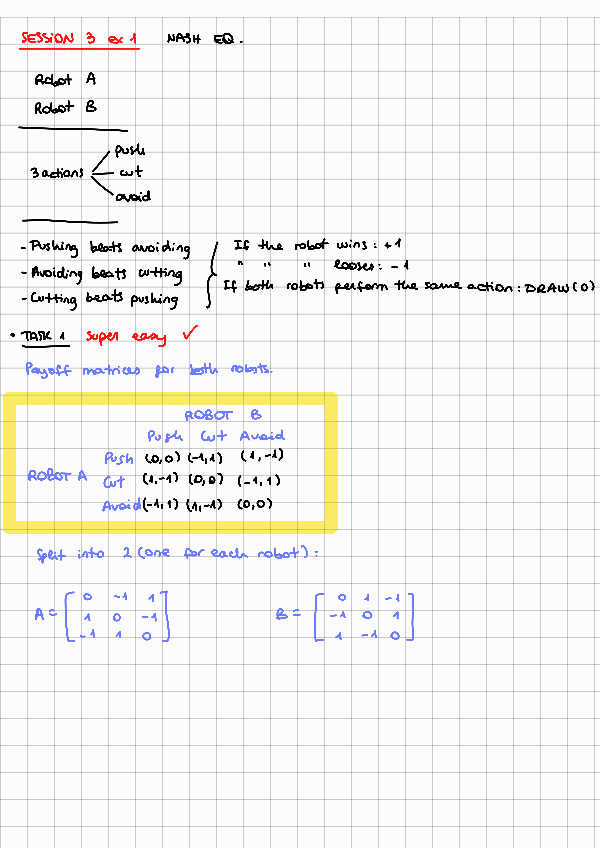 SESSION 3 ex 1 NASH EQ.
Robot A
Robot B
push
3 actions cut
avoid
- Pushing beats avoiding
- Avoiding beats cutting
- Cutting beats pushing
If the robot wins : +1
" " " looses : -1
If both robots perform the same action : DRAW (0)
• TASK 1 super easy ✓
Payoff matrices for both robots.
ROBOT B
Push Cut Avoid
ROBOT A
Push (0,0) (-1,1) (1,-1)
Cut (1,-1) (0,0) (-1,1)
Avoid (-1,1) (1,-1) (0,0)
Split into 2 (one for each robot) :
A = [ 0 -1 1
1 0 -1
-1 1 0 ]
B = [ 0 1 -1
-1 0 1
1 -1 0 ]